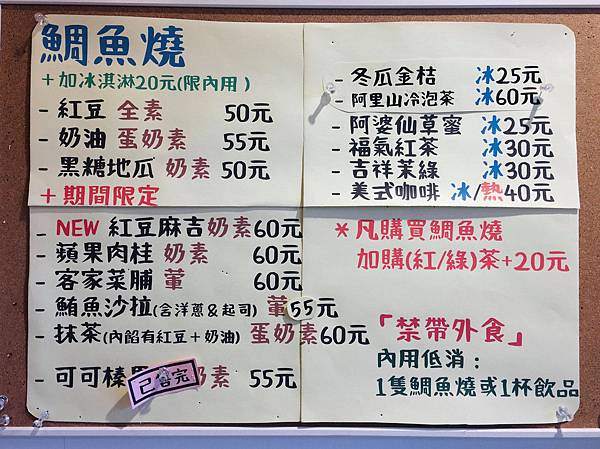 鯛魚燒
＋加冰淇淋20元(限內用)
- 紅豆 全素 50元
- 奶油 蛋奶素 55元
- 黑糖地瓜 奶素 50元
＋期間限定
- NEW 紅豆麻吉 奶素 60元
- 蘋果肉桂 奶素 60元
- 客家菜脯 葷 60元
- 鮪魚沙拉(含洋蔥&起司) 葷 55元
- 抹茶(內餡有紅豆＋奶油) 蛋奶素 60元
- 可可榛 奶素 55元
已售完
- 冬瓜金桔 冰25元
- 阿里山冷泡茶 冰60元
- 阿婆仙草蜜 冰25元
- 福氣紅茶 冰30元
- 吉祥茉綠 冰30元
- 美式咖啡 冰/熱40元
＊凡購買鯛魚燒
加購(紅/綠)茶+20元
「禁帶外食」
內用低消：
1隻鯛魚燒或1杯飲品